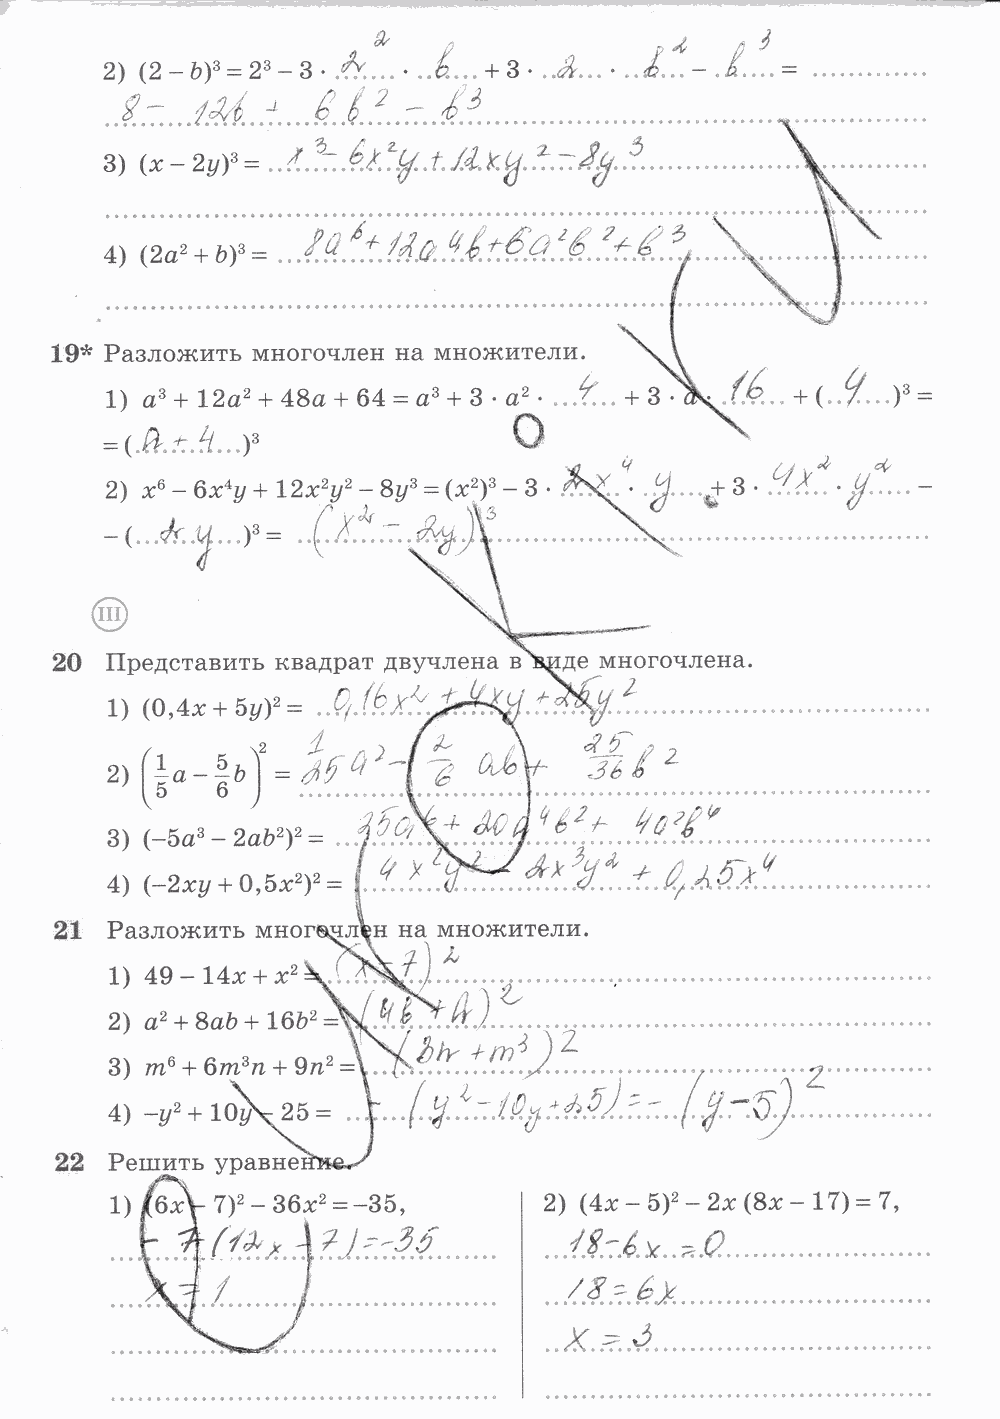 2) (2 − b)³ = 2³ − 3 · 2² · b + 3 · 2 · b² − b³ =
8 − 12b + 6b² − b³
3) (x − 2y)³ = x³ − 6x²y + 12xy² − 8y³
4) (2a² + b)³ = 8a⁶ + 12a⁴b + 6a²b² + b³
19* Разложить многочлен на множители.
1) a³ + 12a² + 48a + 64 = a³ + 3 · a² · 4 + 3 · a · 16 + (4)³ =
= (a + 4)³
2) x⁶ − 6x⁴y + 12x²y² − 8y³ = (x²)³ − 3 · 2x⁴ · y + 3 · 4x² · y² −
− (2y)³ = (x² − 2y)³
III
20 Представить квадрат двучлена в виде многочлена.
1) (0,4x + 5y)² = 0,16x² + 4xy + 25y²
2) (1/5 a − 5/6 b)² = 1/25 a² − 2/6 ab + 25/36 b²
3) (−5a³ − 2ab²)² = 25a⁶ + 20a⁴b² + 4a²b⁴
4) (−2xy + 0,5x²)² = 4x²y² − 2x³y² + 0,25x⁴
21 Разложить многочлен на множители.
1) 49 − 14x + x² = (x − 7)²
2) a² + 8ab + 16b² = (4b + a)²
3) m⁶ + 6m³n + 9n² = (3n + m³)²
4) −y² + 10y − 25 = − (y² − 10y + 25) = − (y − 5)²
22 Решить уравнение.
1) (6x − 7)² − 36x² = −35,
− 7 (12x − 7) = −35
x = 1
2) (4x − 5)² − 2x (8x − 17) = 7,
18 − 6x = 0
18 = 6x
x = 3